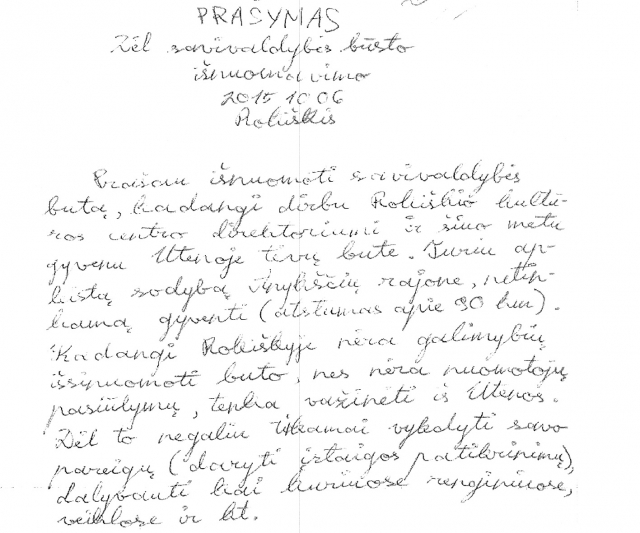 PRAŠYMAS
Dėl savivaldybės būsto
išnuomavimo
2015 10 06
Rokiškis
Prašau išnuomoti savivaldybės
butą, kadangi dirbu Rokiškio kultū-
ros centro direktoriumi ir šiuo metu
gyvenu Utenoje tėvų bute. Turiu ap-
leistą sodybą Anykščių rajone, netin-
kamą gyventi (atstumas apie 90 km).
Kadangi Rokiškyje nėra galimybių
išsinuomoti buto, nes nėra nuomotojų
pasiūlymų, tenka važinėti iš Utenos.
Dėl to negaliu tinkamai vykdyti savo
pareigų (daryti įstaigos patikrinimų),
dalyvauti kai kuriuose renginiuose,
veiklose ir kt.